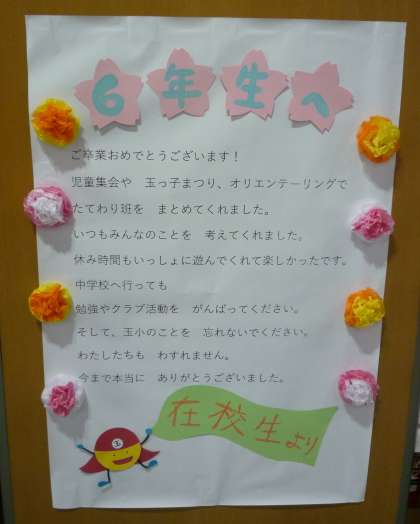 6年生へ
ご卒業おめでとうございます！
児童集会や　玉っ子まつり、オリエンテーリングで
たてわり班を　まとめてくれました。
いつもみんなのことを　考えてくれました。
休み時間もいっしょに遊んでくれて楽しかったです。
中学校へ行っても
勉強やクラブ活動を　がんばってください。
そして、玉小のことを　忘れないでください。
わたしたちも　わすれません。
今まで本当に　ありがとうございました。
在校生より
玉